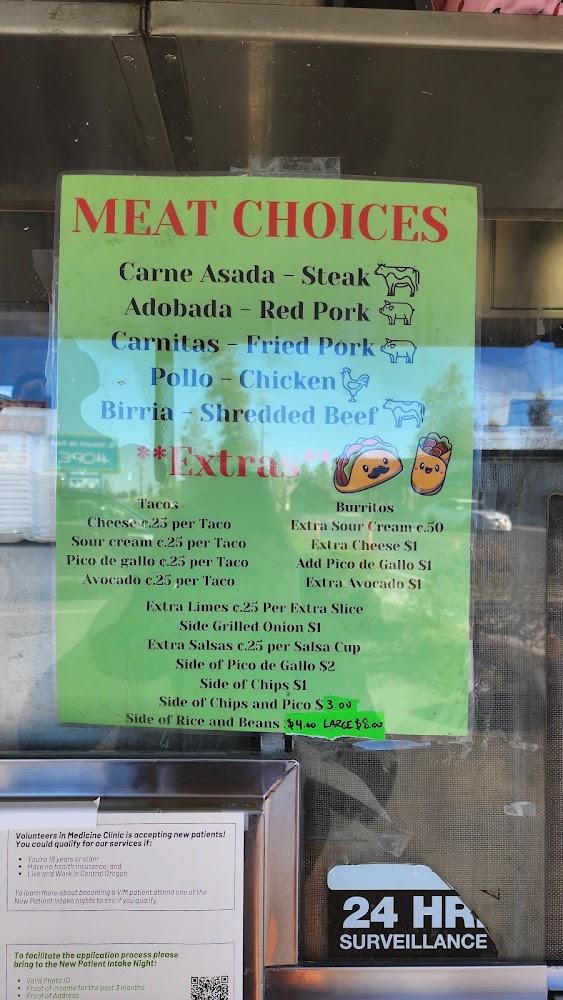 MEAT CHOICES
Carne Asada - Steak
Adobada - Red Pork
Carnitas - Fried Pork
Pollo - Chicken
Birria - Shredded Beef
**Extras**
Tacos
Cheese c.25 per Taco
Sour cream c.25 per Taco
Pico de gallo c.25 per Taco
Avocado c.25 per Taco
Burritos
Extra Sour Cream c.50
Extra Cheese $1
Add Pico de Gallo $1
Extra Avocado $1
Extra Limes c.25 Per Extra Slice
Side Grilled Onion $1
Extra Salsas c.25 per Salsa Cup
Side of Pico de Gallo $2
Side of Chips $1
Side of Chips and Pico $3.00
Side of Rice and Beans $4.00 LARGE $8.00
Volunteers in Medicine Clinic is accepting new patients!
You could qualify for our services if:
• You're 19 years or older
• Have no health insurance, and
• Live and Work in Central Oregon
To learn more about becoming a VIM patient attend one of the
New Patient Intake nights to see if you qualify.
To facilitate the application process please
bring to the New Patient Intake Night:
• Valid Photo ID
• Proof of income for the past 3 months
• Proof of Address
24 HR
SURVEILLANCE